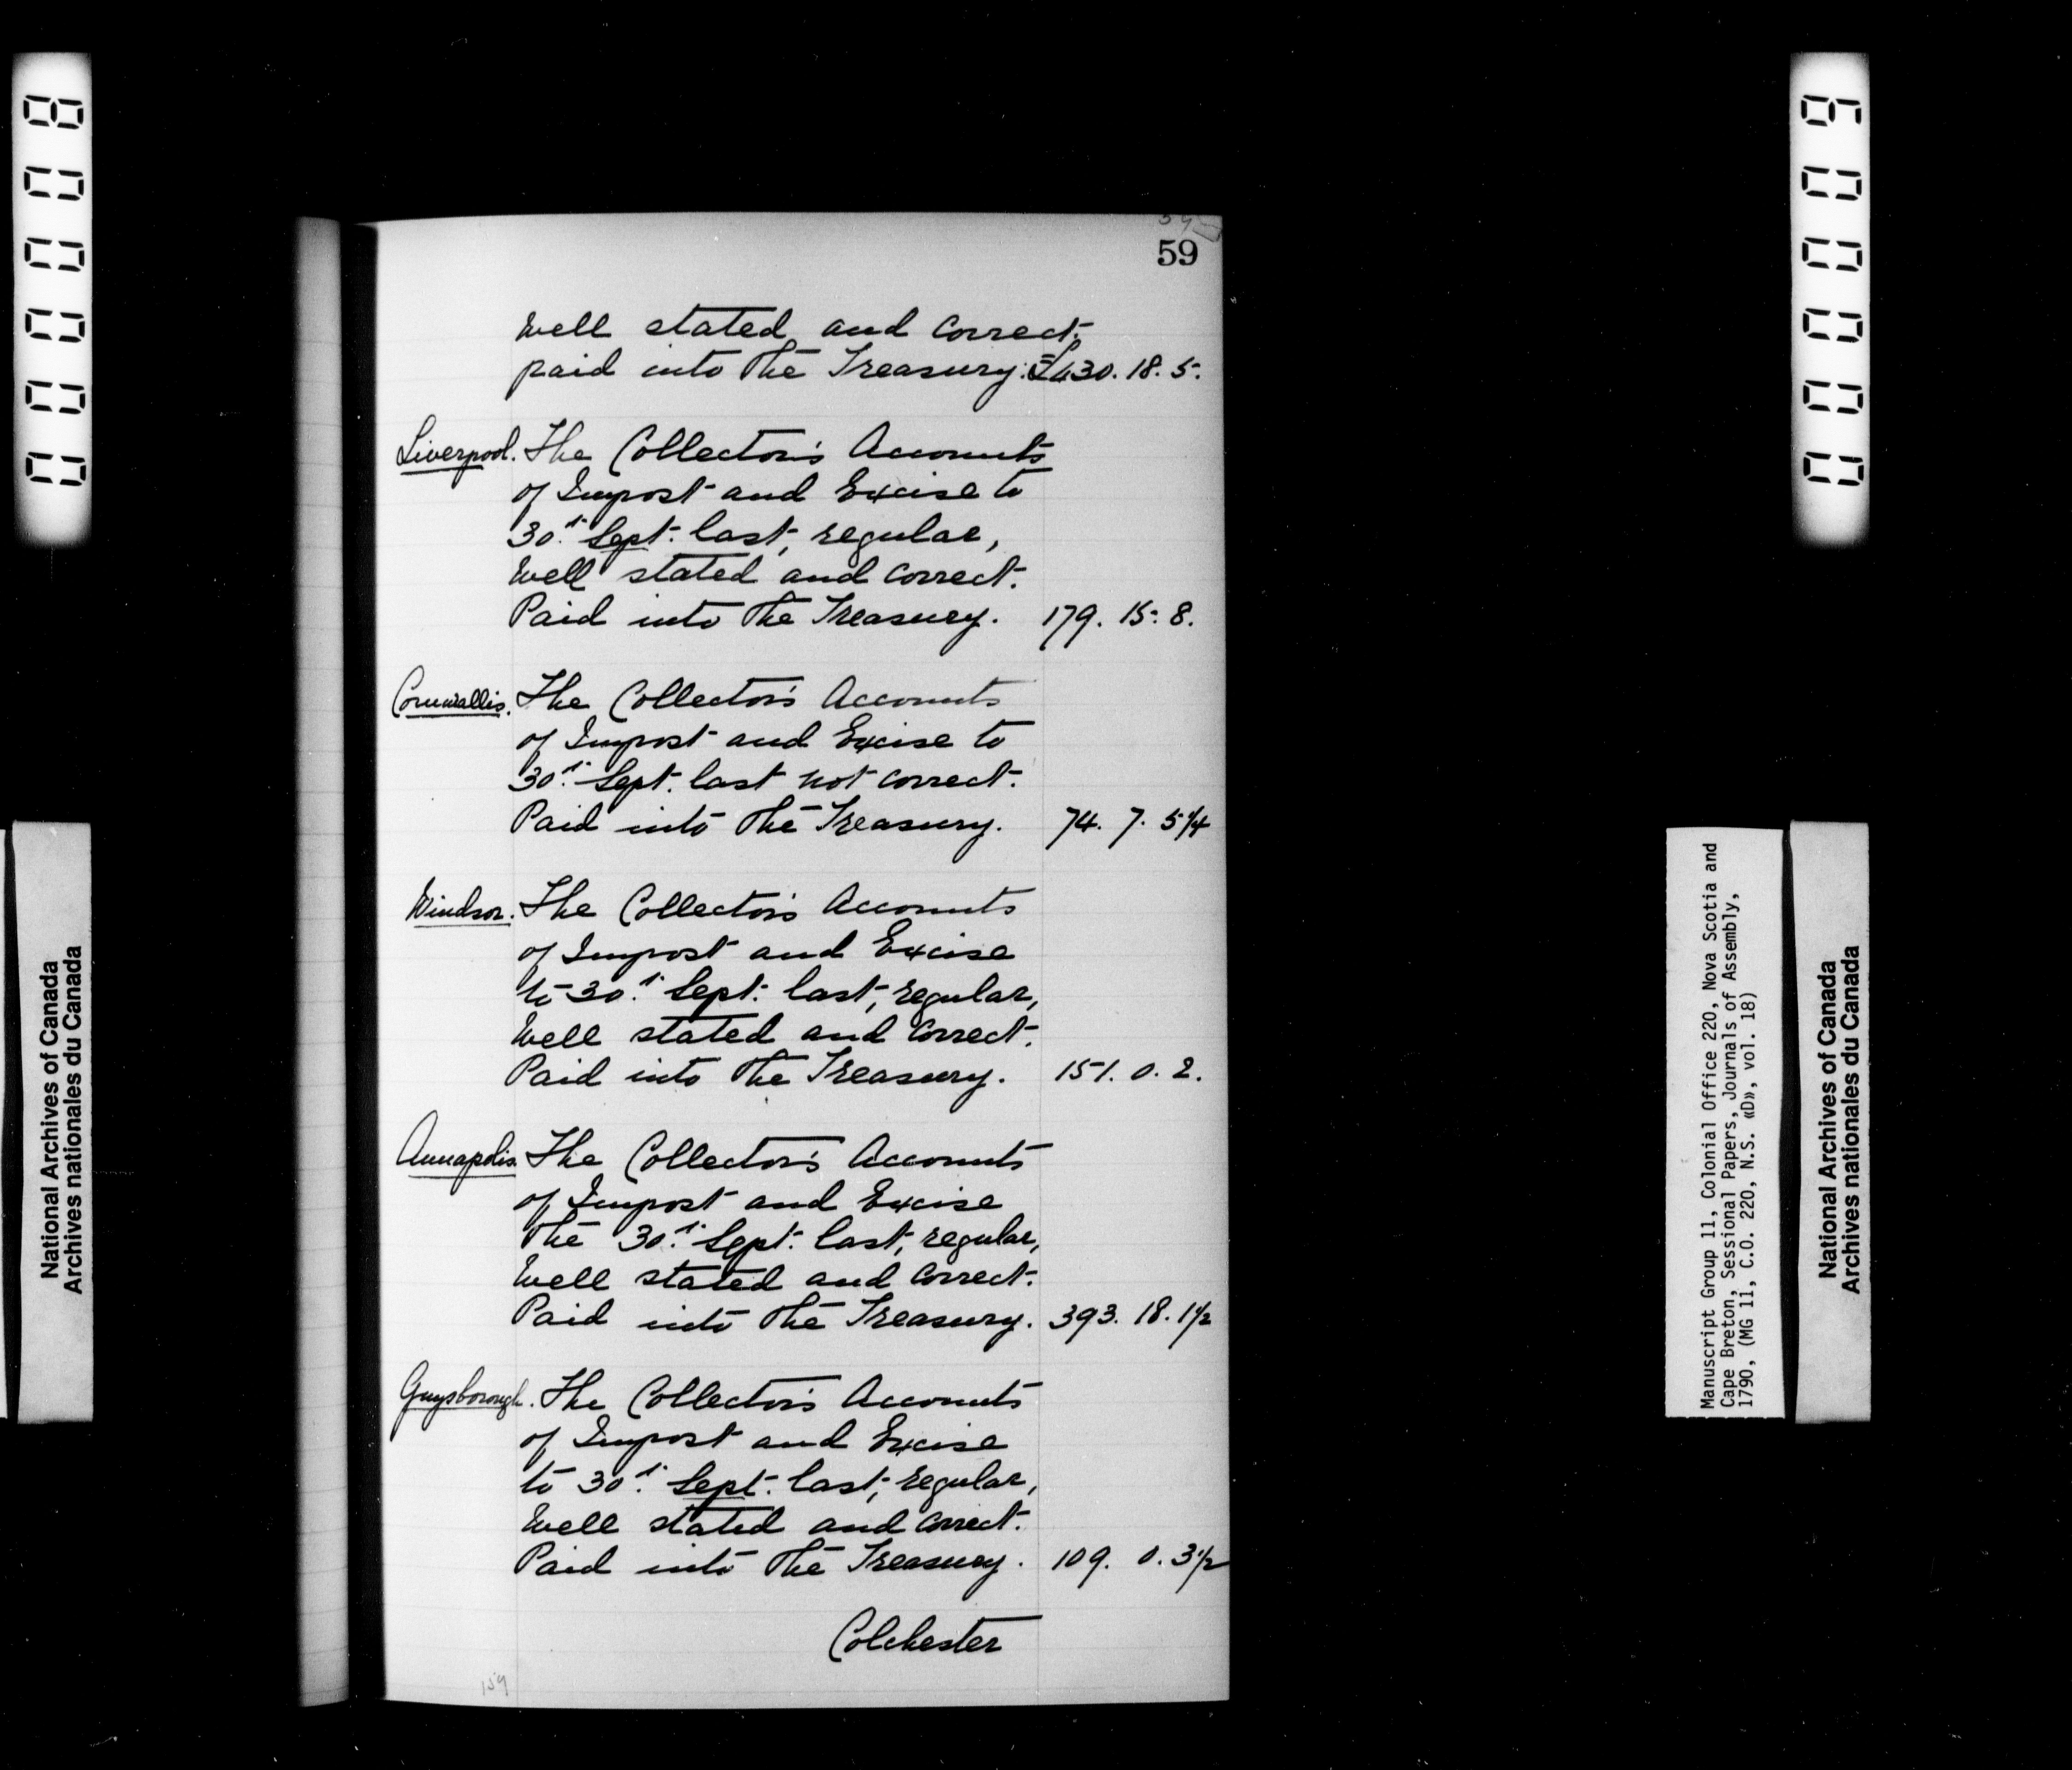 59
well stated and correct.
paid into the Treasury. £430. 18. 5.
Liverpool. The Collector's Accounts
of Impost and Excise to
30.th Sept. last, regular,
well stated and correct.
Paid into the Treasury. 179. 15. 8.
Cornwallis. The Collector's Accounts
of Impost and Excise to
30.th Sept. last not correct.
Paid into the Treasury. 74. 7. 5 1/4
Windsor. The Collector's Accounts
of Impost and Excise
to 30.th Sept. last, regular,
well stated and correct.
Paid into the Treasury. 151. 0. 2.
Annapolis. The Collector's Accounts
of Impost and Excise
the 30.th Sept. last, regular,
well stated and correct.
Paid into the Treasury. 393. 18. 1 1/2
Guysborough. The Collector's Accounts
of Impost and Excise
to 30.th Sept. last, regular,
well stated and correct.
Paid into the Treasury. 109. 0. 3 1/2
Colchester
159
000008
National Archives of Canada
Archives nationales du Canada
000009
Manuscript Group 11, Colonial Office 220, Nova Scotia and
Cape Breton, Sessional Papers, Journals of Assembly,
1790, (MG 11, C.O. 220, N.S. «D», vol. 18)
National Archives of Canada
Archives nationales du Canada